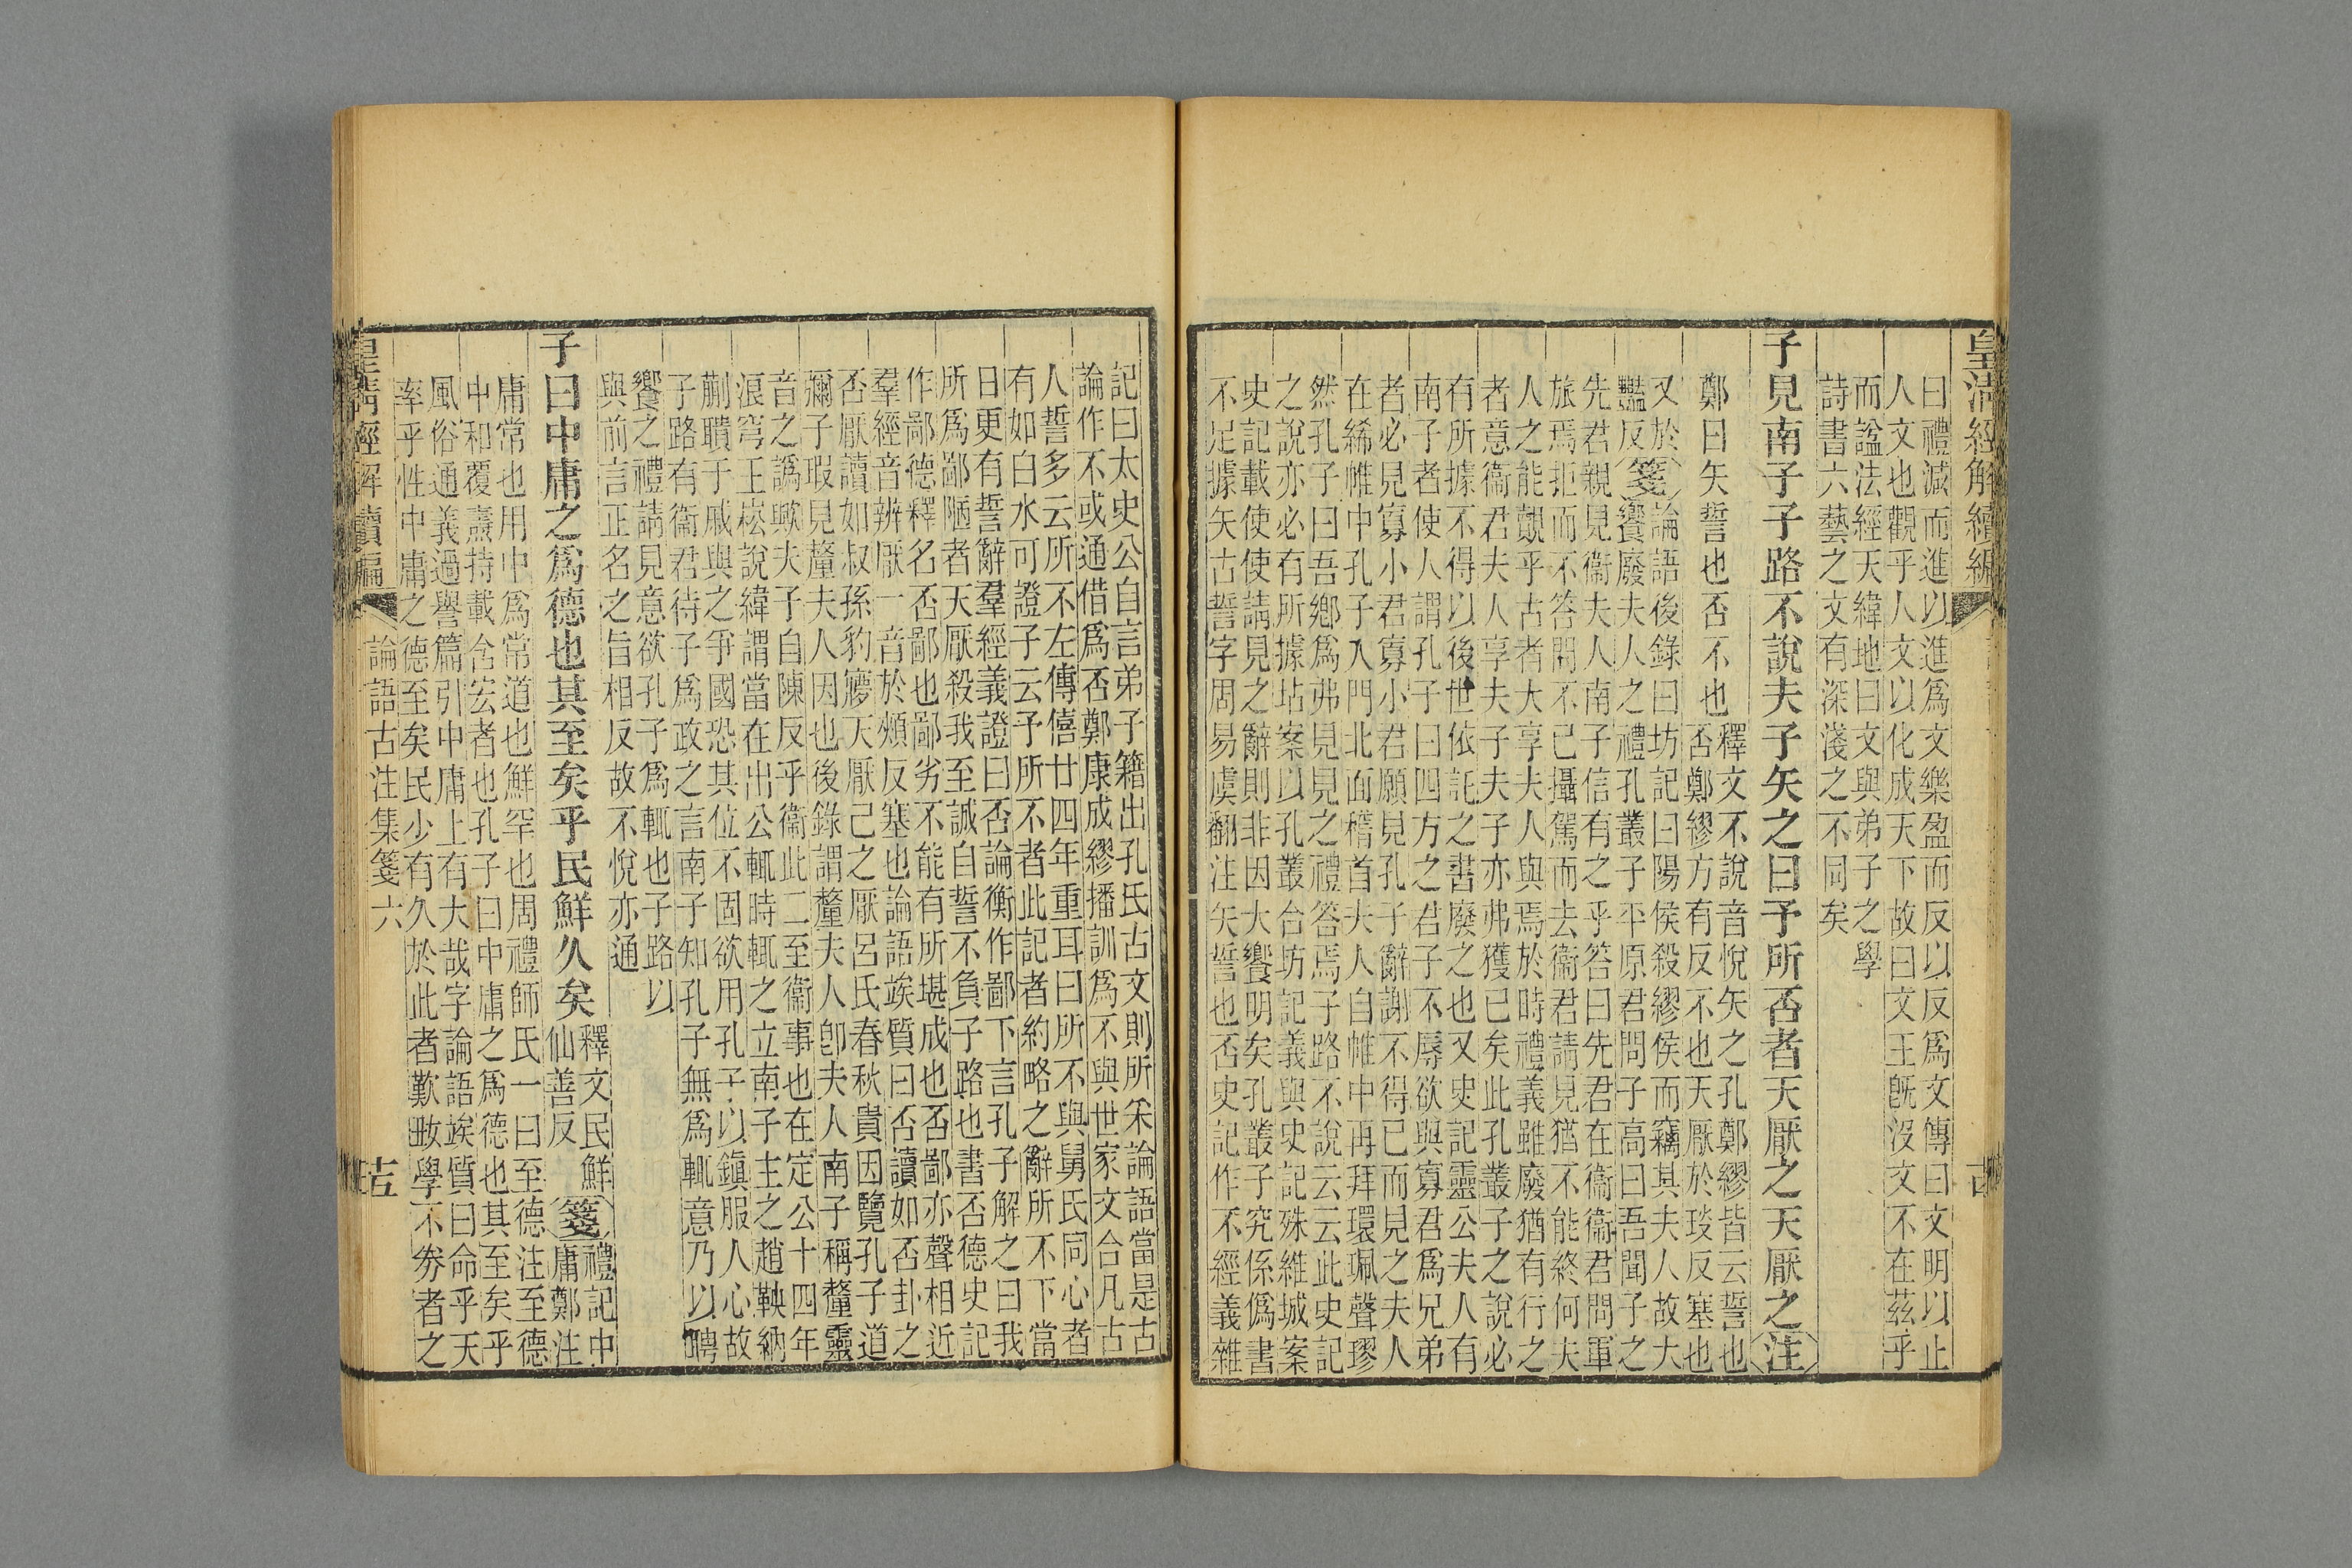 皇清經解續編
曰禮減而進以進爲文樂盈而反以反爲文傳曰文明以止
人文也觀乎人文以化成天下故曰文王旣沒文不在茲乎
而諡法經天緯地曰文與弟子之學
詩書六藝之文有深淺之不同矣
子見南子子路不說夫子矢之曰予所否者天厭之天厭之注
鄭曰矢誓也否不也
釋文不說音悅矢之孔鄭繆皆云誓也
否鄭繆方有反不也天厭於琰反塞也
又於
豔反箋
論語後錄曰坊記曰陽侯殺繆侯而竊其夫人故大
饗廢夫人之禮孔叢子平原君問子高曰吾聞子之
先君親見衞夫人南子信有之乎答曰先君在衞衞君問軍
旅焉拒而不答問不已攝駕而去衞君請見猶不能終何夫
人之能覿乎古者大享夫人與焉於時禮義雖廢猶有行之
者意衞君夫人享夫子夫子亦弗獲已矣此孔叢子之說必
有所據不得以後世依託之書廢之也又史記靈公夫人有
南子者使人謂孔子曰四方之君子不辱欲與寡君爲兄弟
者必見寡小君寡小君願見孔子辭謝不得已而見之夫人
在絺帷中孔子入門北面稽首夫人自帷中再拜環珮聲璆
然孔子曰吾鄉爲弗見見之禮答焉子路不說云云此史記
之說亦必有所據坫案以孔叢合坊記義與史記殊維城案
史記載使使請見之辭則非因大饗明矣孔叢子究係僞書
不足據矢古誓字周易虞翻注矢誓也否史記作不經義雜
記曰太史公自言弟子籍出孔氏古文則所采論語當是古
論作不或通借爲否鄭康成繆播訓爲不與世家文合凡古
人誓多云所不左傳僖廿四年重耳曰所不與舅氏同心者
有如白水可證子云予所不者此記者約略之辭所不下當
日更有誓辭羣經義證曰否論衡作鄙下言孔子解之曰我
所爲鄙陋者天厭殺我至誠自誓不負子路也書否德史記
作鄙德釋名否鄙也鄙劣不能有所堪成也否鄙亦聲相近
羣經音辨厭一音於頰反塞也論語竢質曰否讀如否卦之
否厭讀如叔孫豹㝱天厭己之厭呂氏春秋貴因覽孔子道
彌子瑕見釐夫人因也後錄謂釐夫人卽夫人南子稱釐靈
音之譌歟夫子自陳反乎衞此二至衞事也在定公十四年
浪穹王崧說緯謂當在出公輒時輒之立南子主之趙鞅納
蒯聵于戚與之爭國恐其位不固欲用孔子以鎭服人心故
子路有衞君待子爲政之言南子知孔子無爲輒意乃以聘
饗之禮請見意欲孔子爲輒也子路以
與前言正名之旨相反故不悅亦通
子曰中庸之爲德也其至矣乎民鮮久矣
釋文民鮮
仙善反
箋
禮記中
庸鄭注
庸常也用中爲常道也鮮罕也周禮師氏一曰至德注至德
中和覆燾持載含宏者也孔子曰中庸之爲德也其至矣乎
風俗通義過譽篇引中庸上有大哉字論語竢質曰命乎天
率乎性中庸之德至矣民少有久於此者歎敃學不劵者之
皇淸經解續編
論語古注集箋六